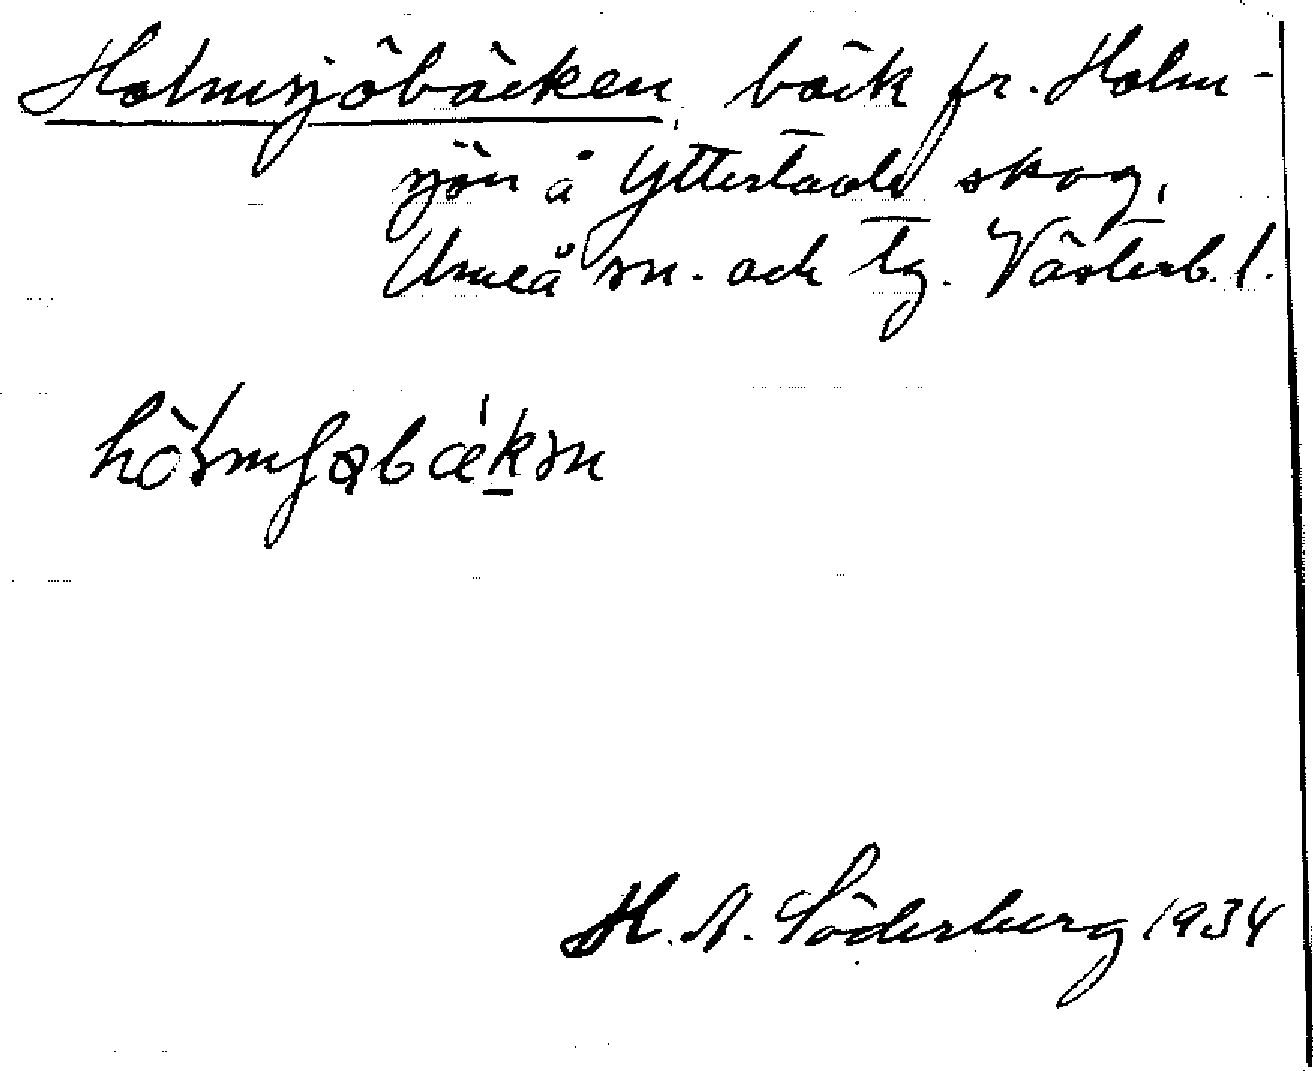 Holmsjöbäcken, bäck fr. Holm-
sjön å Yttertavle skog,
Umeå sn. och tg. Västerb. l.
H. A. Söderberg 1934